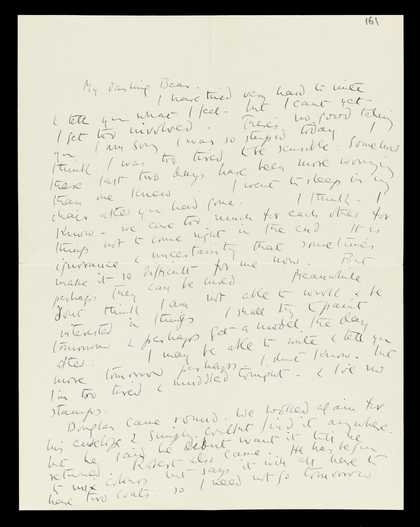 161
My Darling Bear.
I have tried very hard to write
& tell you what I feel - but I can't yet -
I get too involved. There's no good telling
you I am sorry I was so stupid today. I
think I was too tired to be sensible. Somehow
these last two days have been more worrying
than one knew. I went to sleep in my
chair after you had gone. I think - I
know - we care too much for each other for
things not to come right in the end. It is
ignorance & uncertainty that sometimes
make it so difficult for me now. But
perhaps they can be used. Meanwhile
I don't think I am not able to work & be
interested in things. I shall try & paint
tomorrow & perhaps get a model the day
after. I may be able to write & tell you
more tomorrow perhaps. I don't know. but
I'm too tired & muddled tonight - & I've no
stamps.
Douglas came round. We worked again for
his envelope & simply couldn't find it anywhere.
but he said he didn't want it till he
returned. Robert also came. He has begun
to mix colours but says it will all have to
have two coats so I need not go tomorrow